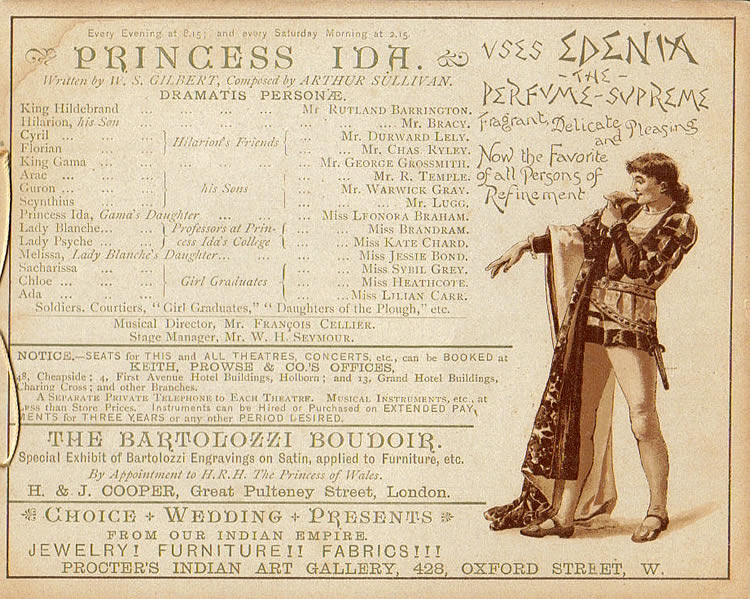 Every Evening at 8.15; and every Saturday Morning at 2.15.
PRINCESS IDA.
Written by W. S. GILBERT, Composed by ARTHUR SULLIVAN.
DRAMATIS PERSONÆ.
King Hildebrand ... ... ... ... Mr RUTLAND BARRINGTON.
Hilarion, his Son ... ... ... ... Mr. BRACY.
Cyril ... ... Hilarion's Friends ... Mr. DURWARD LELY.
Florian ... ... ... Mr. CHAS RYLEY.
King Gama ... ... ... ... Mr. GEORGE GROSSMITH.
Arac ... ... ... ... Mr. R. TEMPLE.
Guron ... ... his Sons ... Mr. WARWICK GRAY.
Scynthius ... ... ... Mr. LUGG.
Princess Ida, Gama's Daughter ... ... ... Miss LEONORA BRAHAM.
Lady Blanche... ... Professors at Prin- ... Miss BRANDRAM.
Lady Psyche ... ... cess Ida's College ... Miss KATE CHARD.
Melissa, Lady Blanche's Daughter... ... ... Miss JESSIE BOND.
Sacharissa ... ... ... ... Miss SYBIL GREY.
Chloe ... ... ... Girl Graduates ... Miss HEATHCOTE.
Ada ... ... ... ... ... Miss LILIAN CARR.
Soldiers. Courtiers, "Girl Graduates," "Daughters of the Plough," etc.
Musical Director, Mr. FRANÇOIS CELLIER.
Stage Manager, Mr. W. H. SEYMOUR.
NOTICE.—SEATS for THIS and ALL THEATRES, CONCERTS, etc., can be BOOKED at
KEITH, PROWSE & CO.'S OFFICES,
48, Cheapside; 4, First Avenue Hotel Buildings, Holborn; and 13, Grand Hotel Buildings,
Charing Cross; and other Branches.
A SEPARATE PRIVATE TELEPHONE to EACH THEATRE. MUSICAL INSTRUMENTS, etc., at
Less than Store Prices. Instruments can be Hired or Purchased on EXTENDED PAY,
MENTS for THREE YEARS or any other PERIOD DESIRED.
THE BARTOLOZZI BOUDOIR.
Special Exhibit of Bartolozzi Engravings on Satin, applied to Furniture, etc.
By Appointment to H.R.H. The Princess of Wales.
H. & J. COOPER, Great Pulteney Street, London.
CHOICE + WEDDING + PRESENTS
FROM OUR INDIAN EMPIRE.
JEWELRY! FURNITURE!! FABRICS!!!
PROCTER'S INDIAN ART GALLERY, 428, OXFORD STREET, W.
USES EDENIA
-THE-
PERFUME-SUPREME
Fragrant, Delicate
and Pleasing
Now the Favorite
of all Persons of
Refinement